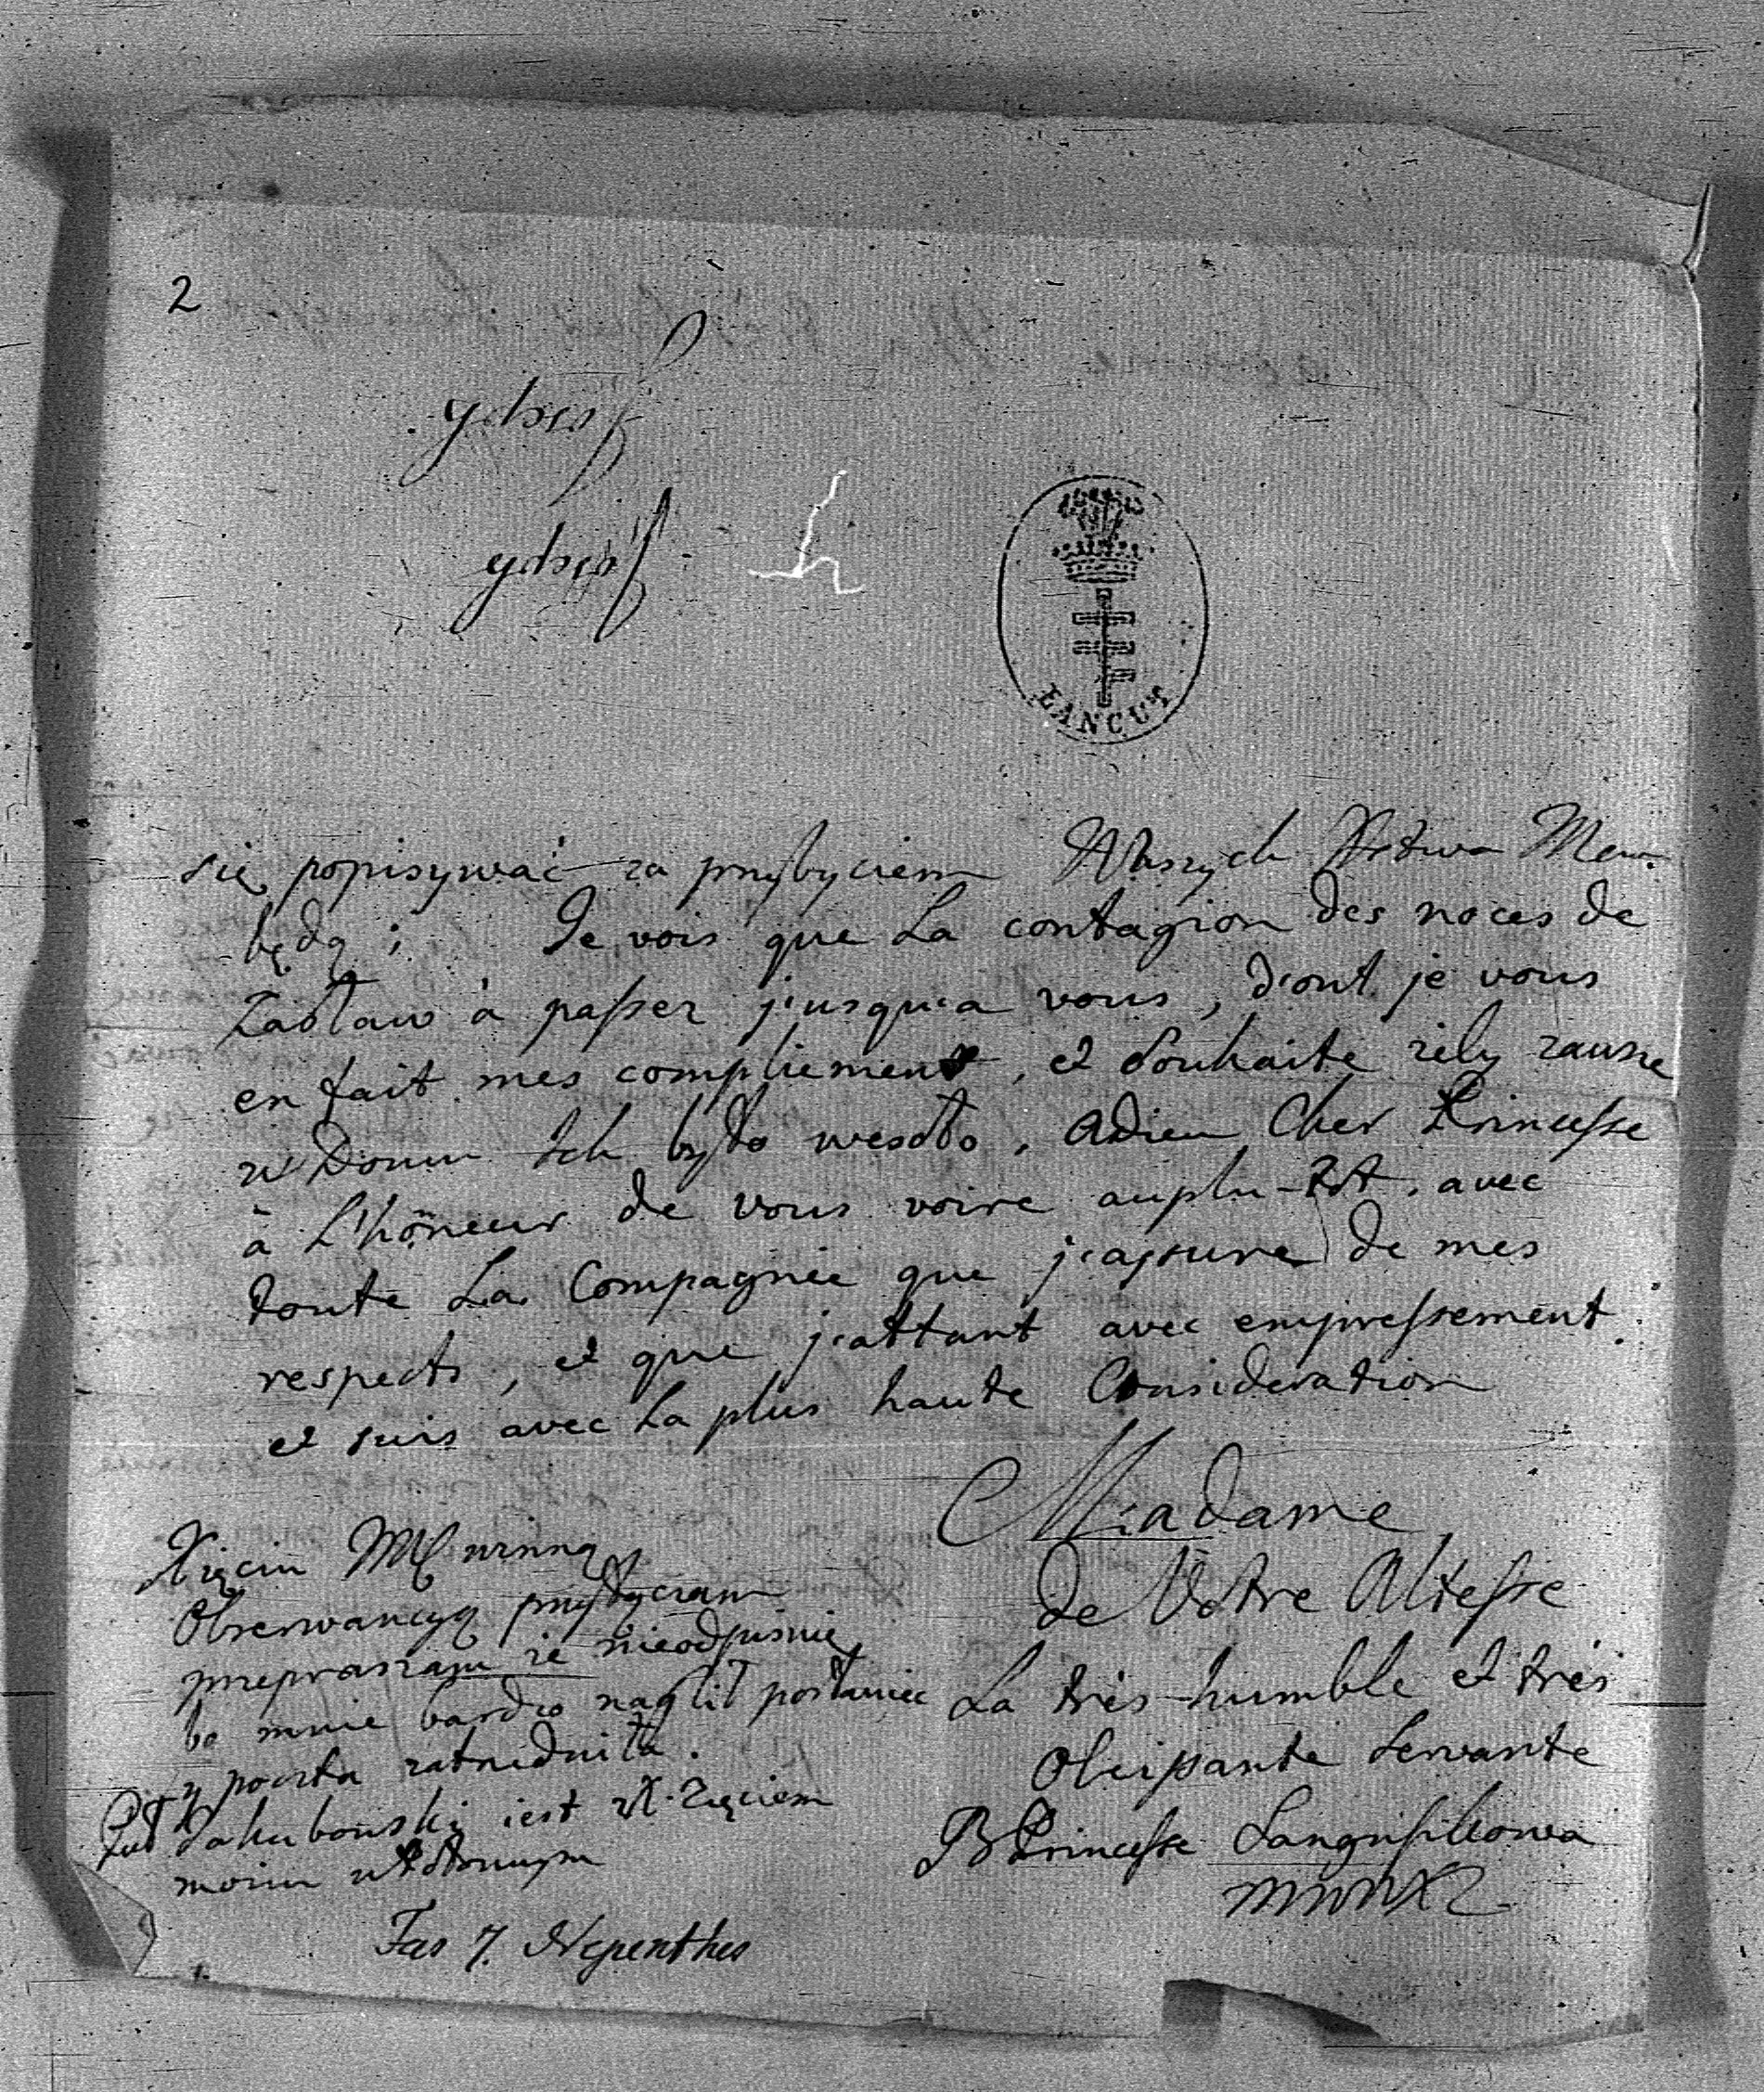 2
ŁAŃCUT
się popisywać za przybyciem Waszych Mew
będą ; Je vois que La contagion des noces de
Zasław à passer j'usqu'a vous, d'ont je vous
en fait mes compliement, et souhaite żeby zawsze
w Domu Ich było wesoło, adieu Cher Princesse
à L'hõneur de vous voire auplu-tot, avec
toute La Compagnie que j'assure de mes
respects, et que j'attant avec empressement
et suis avec La plus haute Consideration
Madame
de Votre Altesse
La très-humble et très
Obeissante Servante
B Princesse Sanguszkowa
MWWXL
Xięciu MC winną
Obserwancyą przyłączam
przepraszam że nieodpisuię
bo mnie bardzo naglił posłaniec
y poczta zatrudniła.
Jakubowski iest X. Zięciem
moim
Fas 7. Nepenthes